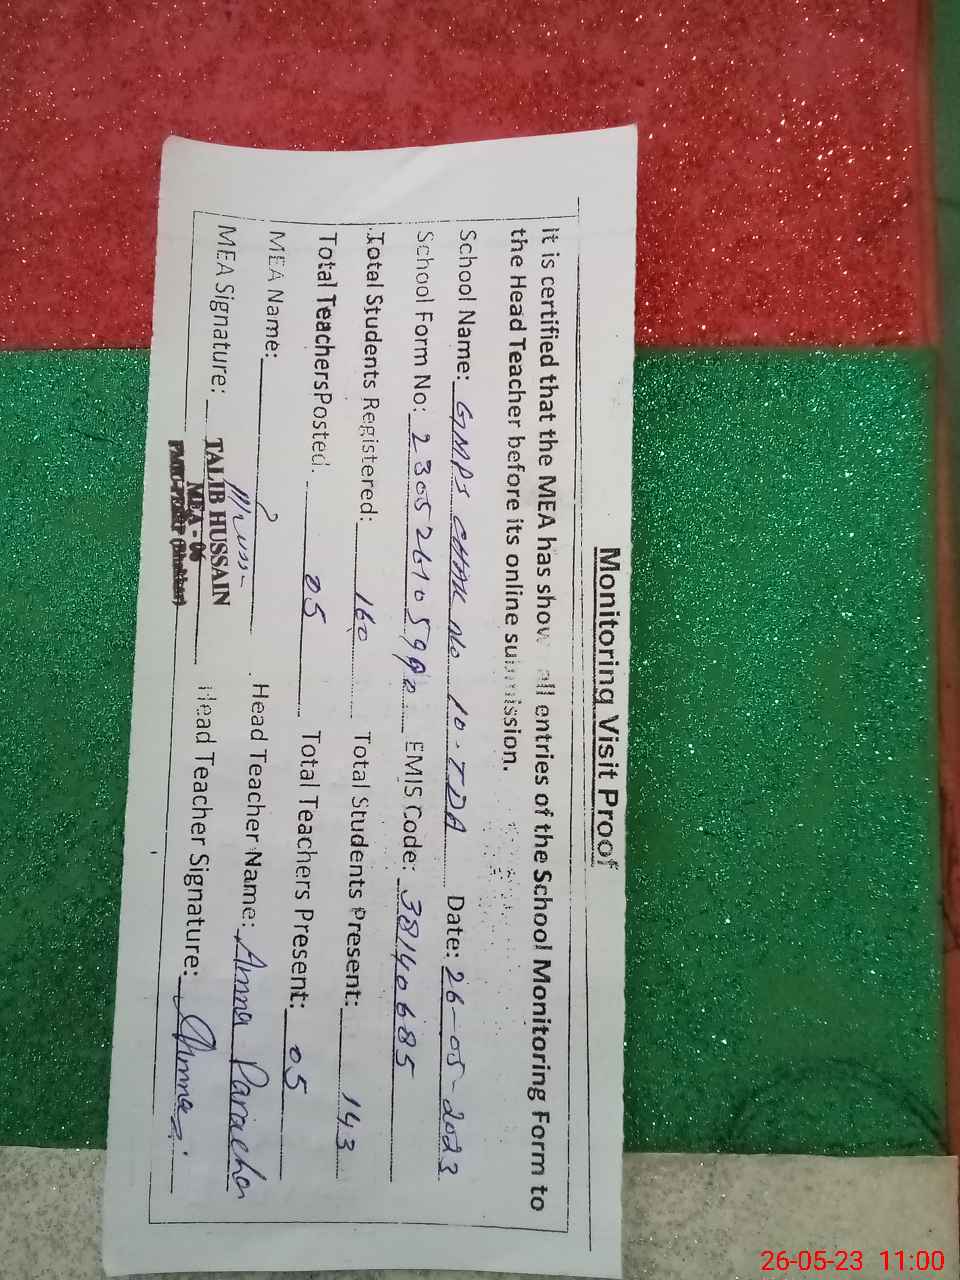 Monitoring Visit Proof
It is certified that the MEA has show all entries of the School Monitoring Form to
the Head Teacher before its online submission.
School Name: GMPS CHAK No 10.TDA Date: 26-05-2023
School Form No: EMIS Code: 38140685
Total Students Registered: 160 Total Students Present: 143
Total TeachersPosted. 05 Total Teachers Present: 05
MEA Name: Head Teacher Name: Amna Paracha
MEA Signature: Head Teacher Signature: Amna
TALIB HUSSAIN
MEA - 06
26-05-23 11:00